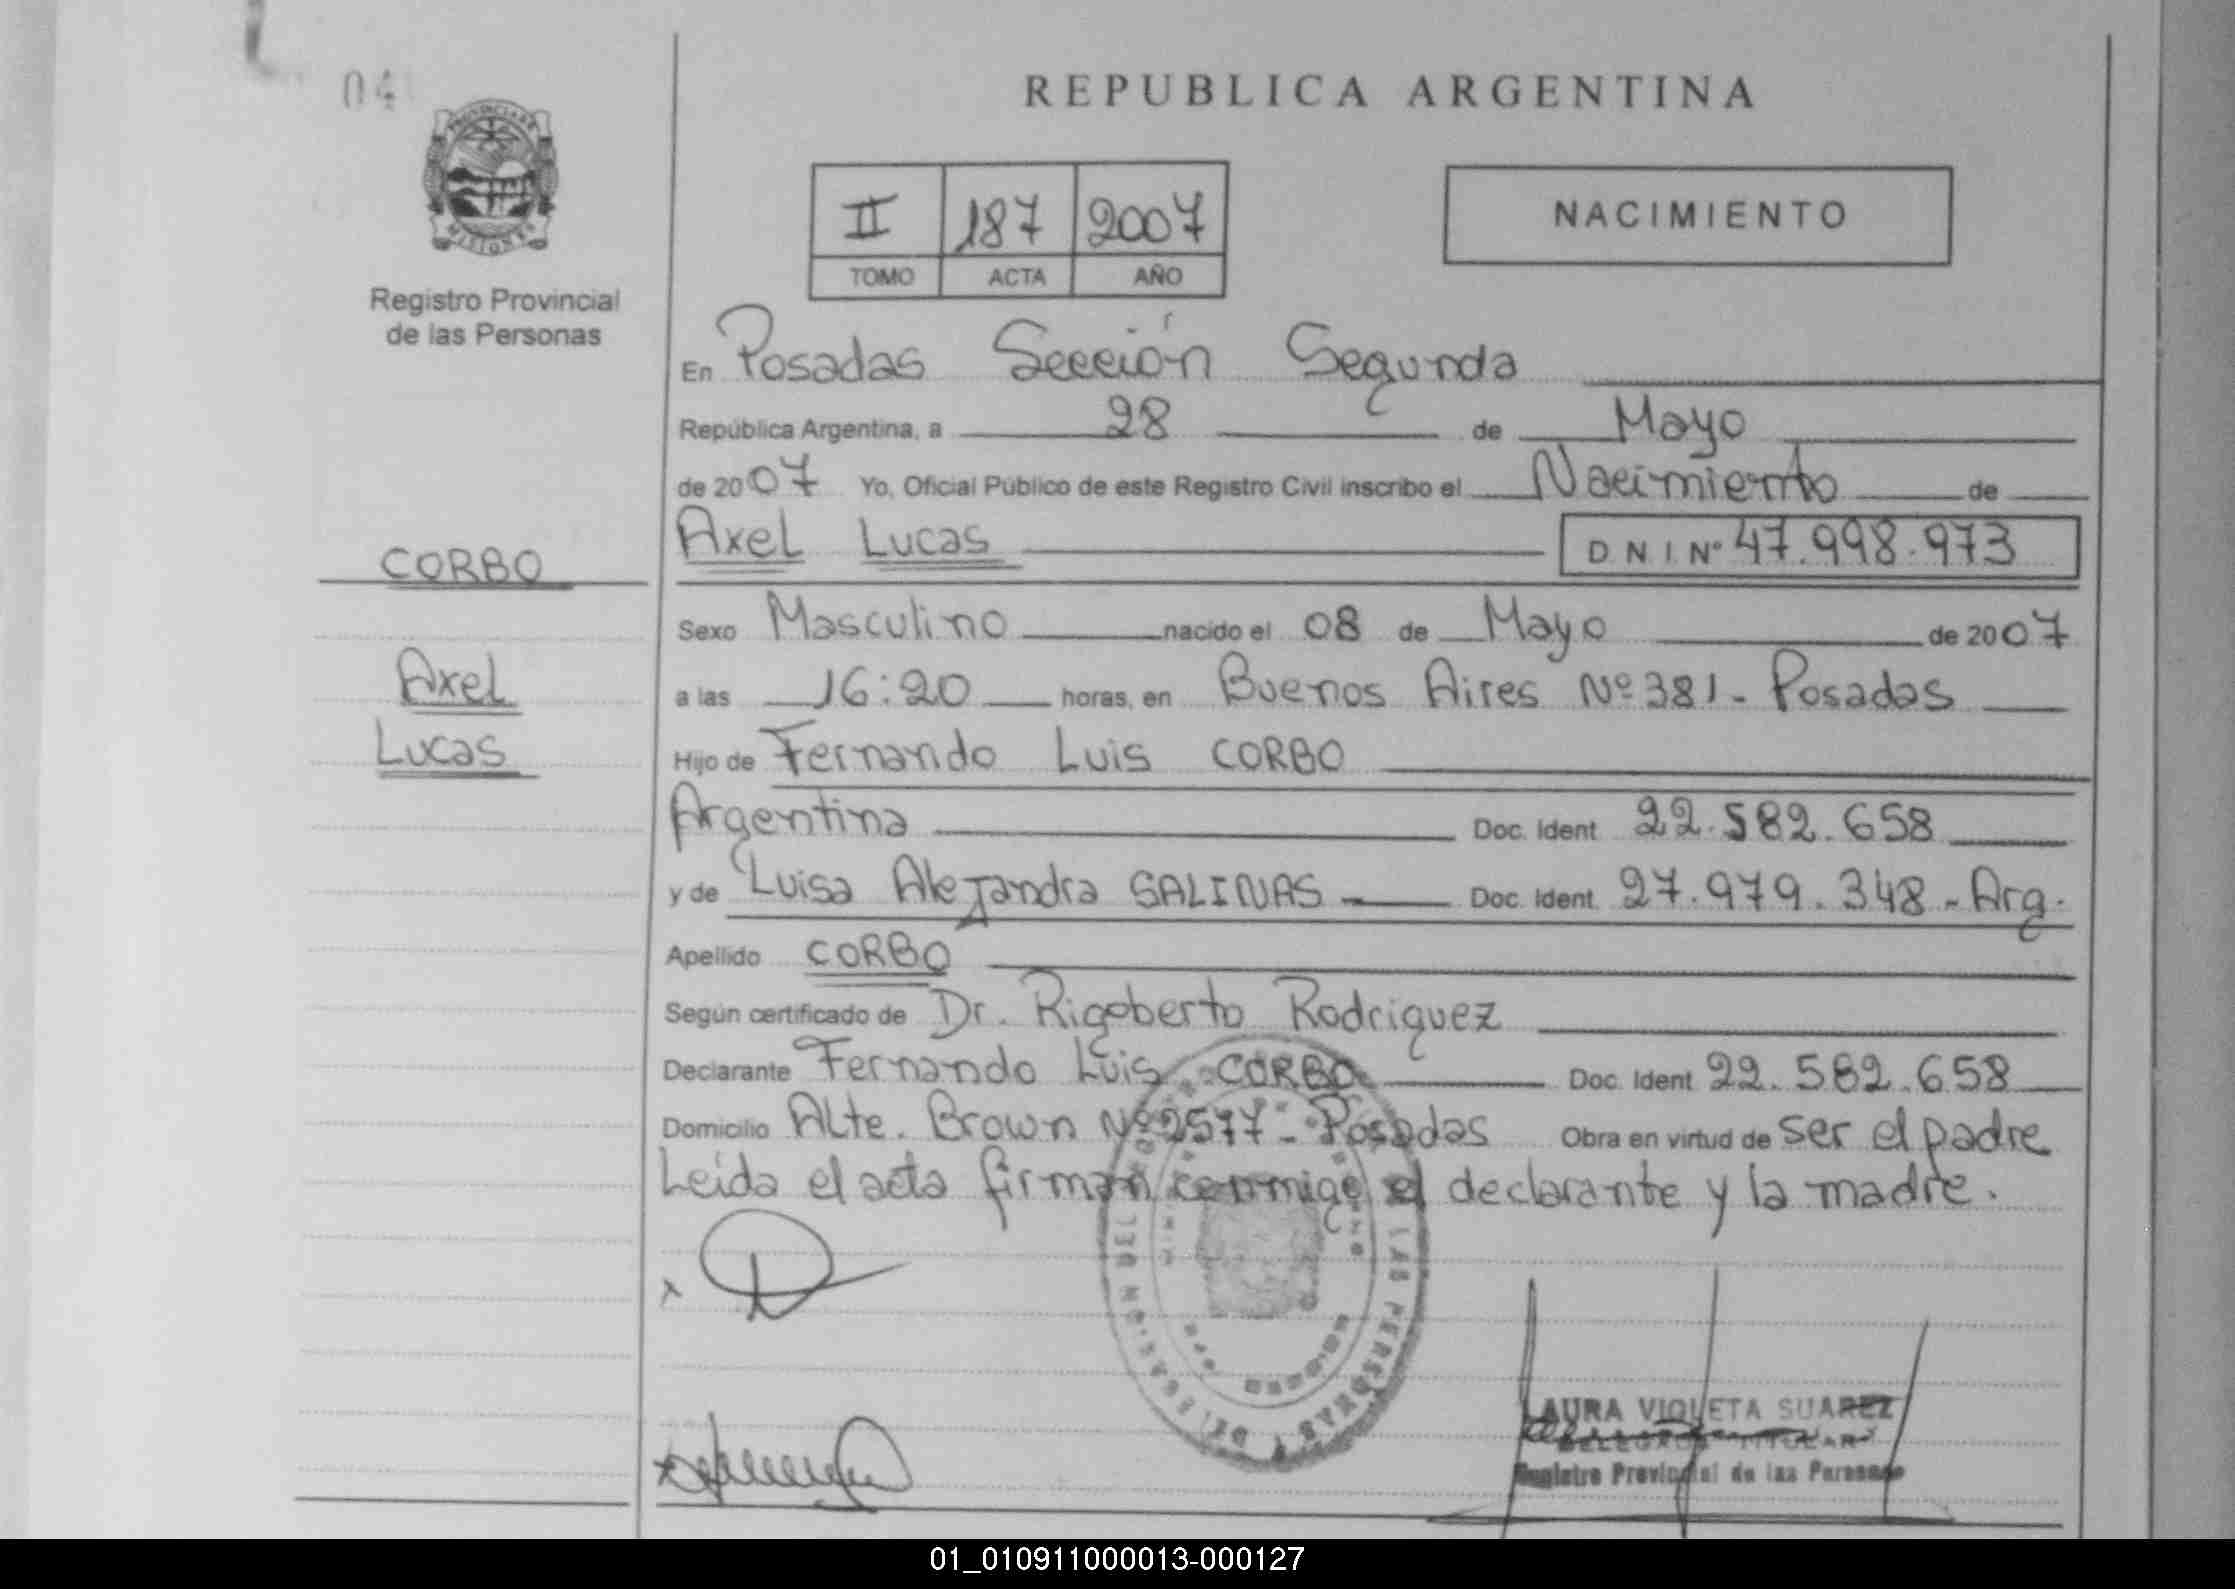 04
REPUBLICA ARGENTINA
PROVINCIA DE
MISIONES
Registro Provincial
de las Personas
II 187 2007
TOMO ACTA AÑO
NACIMIENTO
En Posadas Sección Segunda
República Argentina, a 28 de Mayo
de 2007 Yo, Oficial Público de este Registro Civil inscribo el Nacimiento de
CORBO
Axel Lucas D.N.I. Nº 47.998.973
Sexo Masculino nacido el 08 de Mayo de 2007
Axel
a las 16:20 horas, en Buenos Aires Nº 381 - Posadas
Lucas
Hijo de Fernando Luis CORBO
Argentina Doc. Ident. 22.582.658
y de Luisa Alejandra SALINAS Doc. Ident. 27.979.348 - Arg.
Apellido CORBO
Según certificado de Dr. Rigoberto Rodriguez
Declarante Fernando Luis CORBO Doc. Ident 22.582.658
Domicilio Alte. Brown Nº 2577 - Posadas Obra en virtud de ser el padre
Leída el acta firman conmigo el declarante y la madre.
LAS PERSONAS
LAURA VIOLETA SUAREZ
DELEGADA TITULAR
Registro Provincial de las Personas
01_010911000013-000127